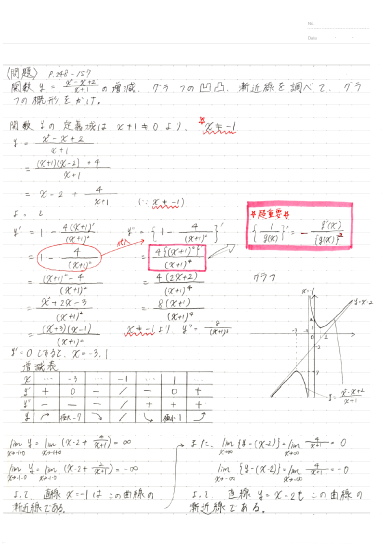 No.
Date
(問題) P.248-157
関数 y = x²-x+2 / x+1 の増減、グラフの凹凸、漸近線を調べて、グラ
フの概形をかけ。
関数 y の定義域は x+1≠0 より、 x≠-1
y = x²-x+2 / x+1
= (x+1)(x-2)+4 / x+1
= x-2 + 4 / x+1 (∵ x≠-1)
y' = 1 - 4(x+1)' / (x+1)²
= 1 - 4 / (x+1)²
= (x+1)²-4 / (x+1)²
= x²+2x-3 / (x+1)²
= (x+3)(x-1) / (x+1)²
y'' = { 1 - 4 / (x+1)² }'
= 4{(x+1)²}' / (x+1)⁴
= 4(2x+2) / (x+1)⁴
= 8(x+1) / (x+1)⁴
x≠-1 より y'' = 8 / (x+1)³
超重要
{ 1 / g(x) }' = - g'(x) / {g(x)}²
グラフ
x=-1
y=x-2
y = x²-x+2 / x+1
y'=0 とすると、x=-3, 1
増減表
x … -3 … -1 … 1 …
y' + 0 - / - 0 +
y'' - - - / + + +
lim y = lim (x-2+ 4 / x+1) = ∞
lim y = lim (x-2+ 4 / x+1) = -∞
よって、直線 x=-1 は この曲線の
漸近線である。
また、 lim {y-(x-2)} = lim 4 / x+1 = 0
lim {y-(x-2)} = lim 4 / x+1 = -0
よって 直線 y=x-2も この曲線の
漸近線である。